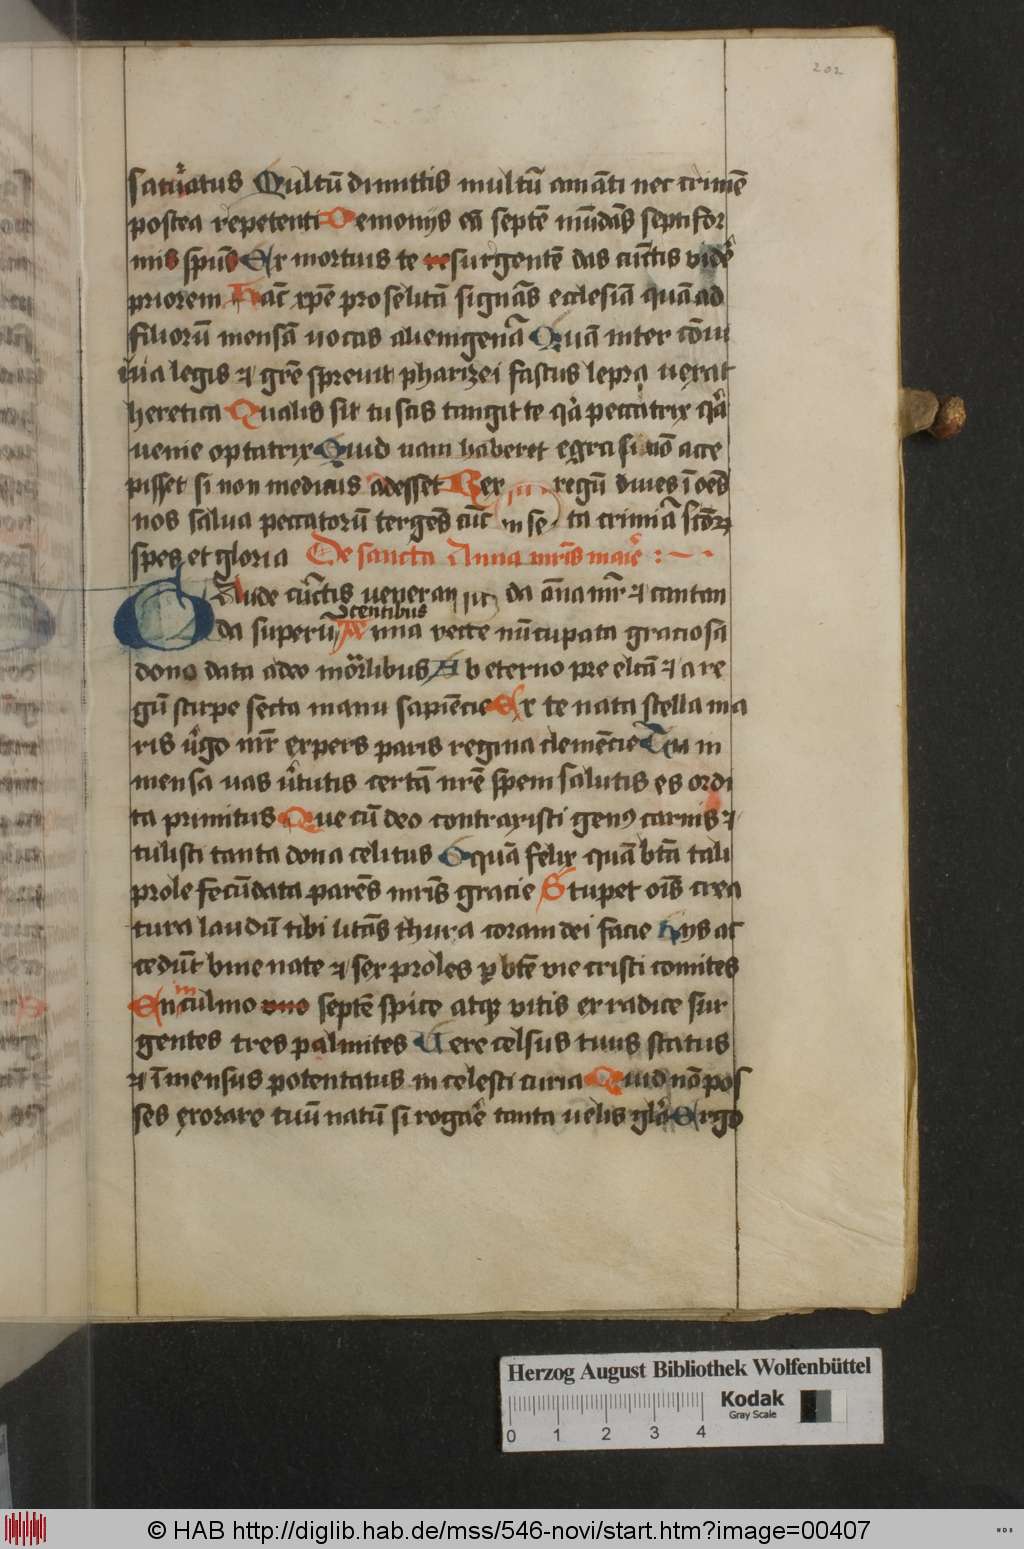 202
satu͛atus Qultū dimittis multū amāti nec crimē
postea repetenti Demonijs eā septē mūdās septifor
mis spūs Ex mortuis te resurgentē das cūctis vidē
priorem Hac̄ xp̄e proselitā signās ecclesiā quā ad
filiorū mensā vocas alienigenā Quā inter cōui
uia legis ⁊ grē spreuit pharizei fastus lepra uexat
heretica Qualis sit tu scis tangit te q̄ peccatrix q̄
uenie optatrix Quid nam haberet egra si nō acce
pisset si non medicus adesset Rex regū diues ī oēs
nos salua peccatorū tergēs cūc ta crimīa sctōꝝ
spes et gloria De sancta Anna mr̄is marie
Gaude cūctis ueneran da āna mr̄ ⁊ cantan
scentibus
da superū Anna recte nūcupata graciosa
dono data adeo mor̄libus Ab eterno pre elcā ⁊ a re
gū stirpe secta manu sapiēcie Ex te nata stella ma
ris u͛go mr̄ expers paris regina clemēcie Tu in
mensa uas u͛tutis certā nrē spem salutis es ordi
ta primitus Que cū deo contraxisti genꝰ carnis ⁊
tulisti tanta dona celitus O quā felix quā btā tali
prole fecūdata parēs mr̄is gracie Stupet oīs crea
tura laudū tibi litās thura coram dei facie Hijs ac
cedūt bine nate ⁊ sex proles ꝑ btē vie cristi comites
m
In culmo uno septē spice atqꝫ vitis ex radice sur
gentes tres palmites Uere celsus tuus status
⁊ īmensus potentatus in celesti curia Quid nō pos
ses exorare tuū natū si rogaē tanta uelis glā Ergo
Herzog August Bibliothek Wolfenbüttel
Kodak
Gray Scale
0 1 2 3 4
© HAB http://diglib.hab.de/mss/546-novi/start.htm?image=00407